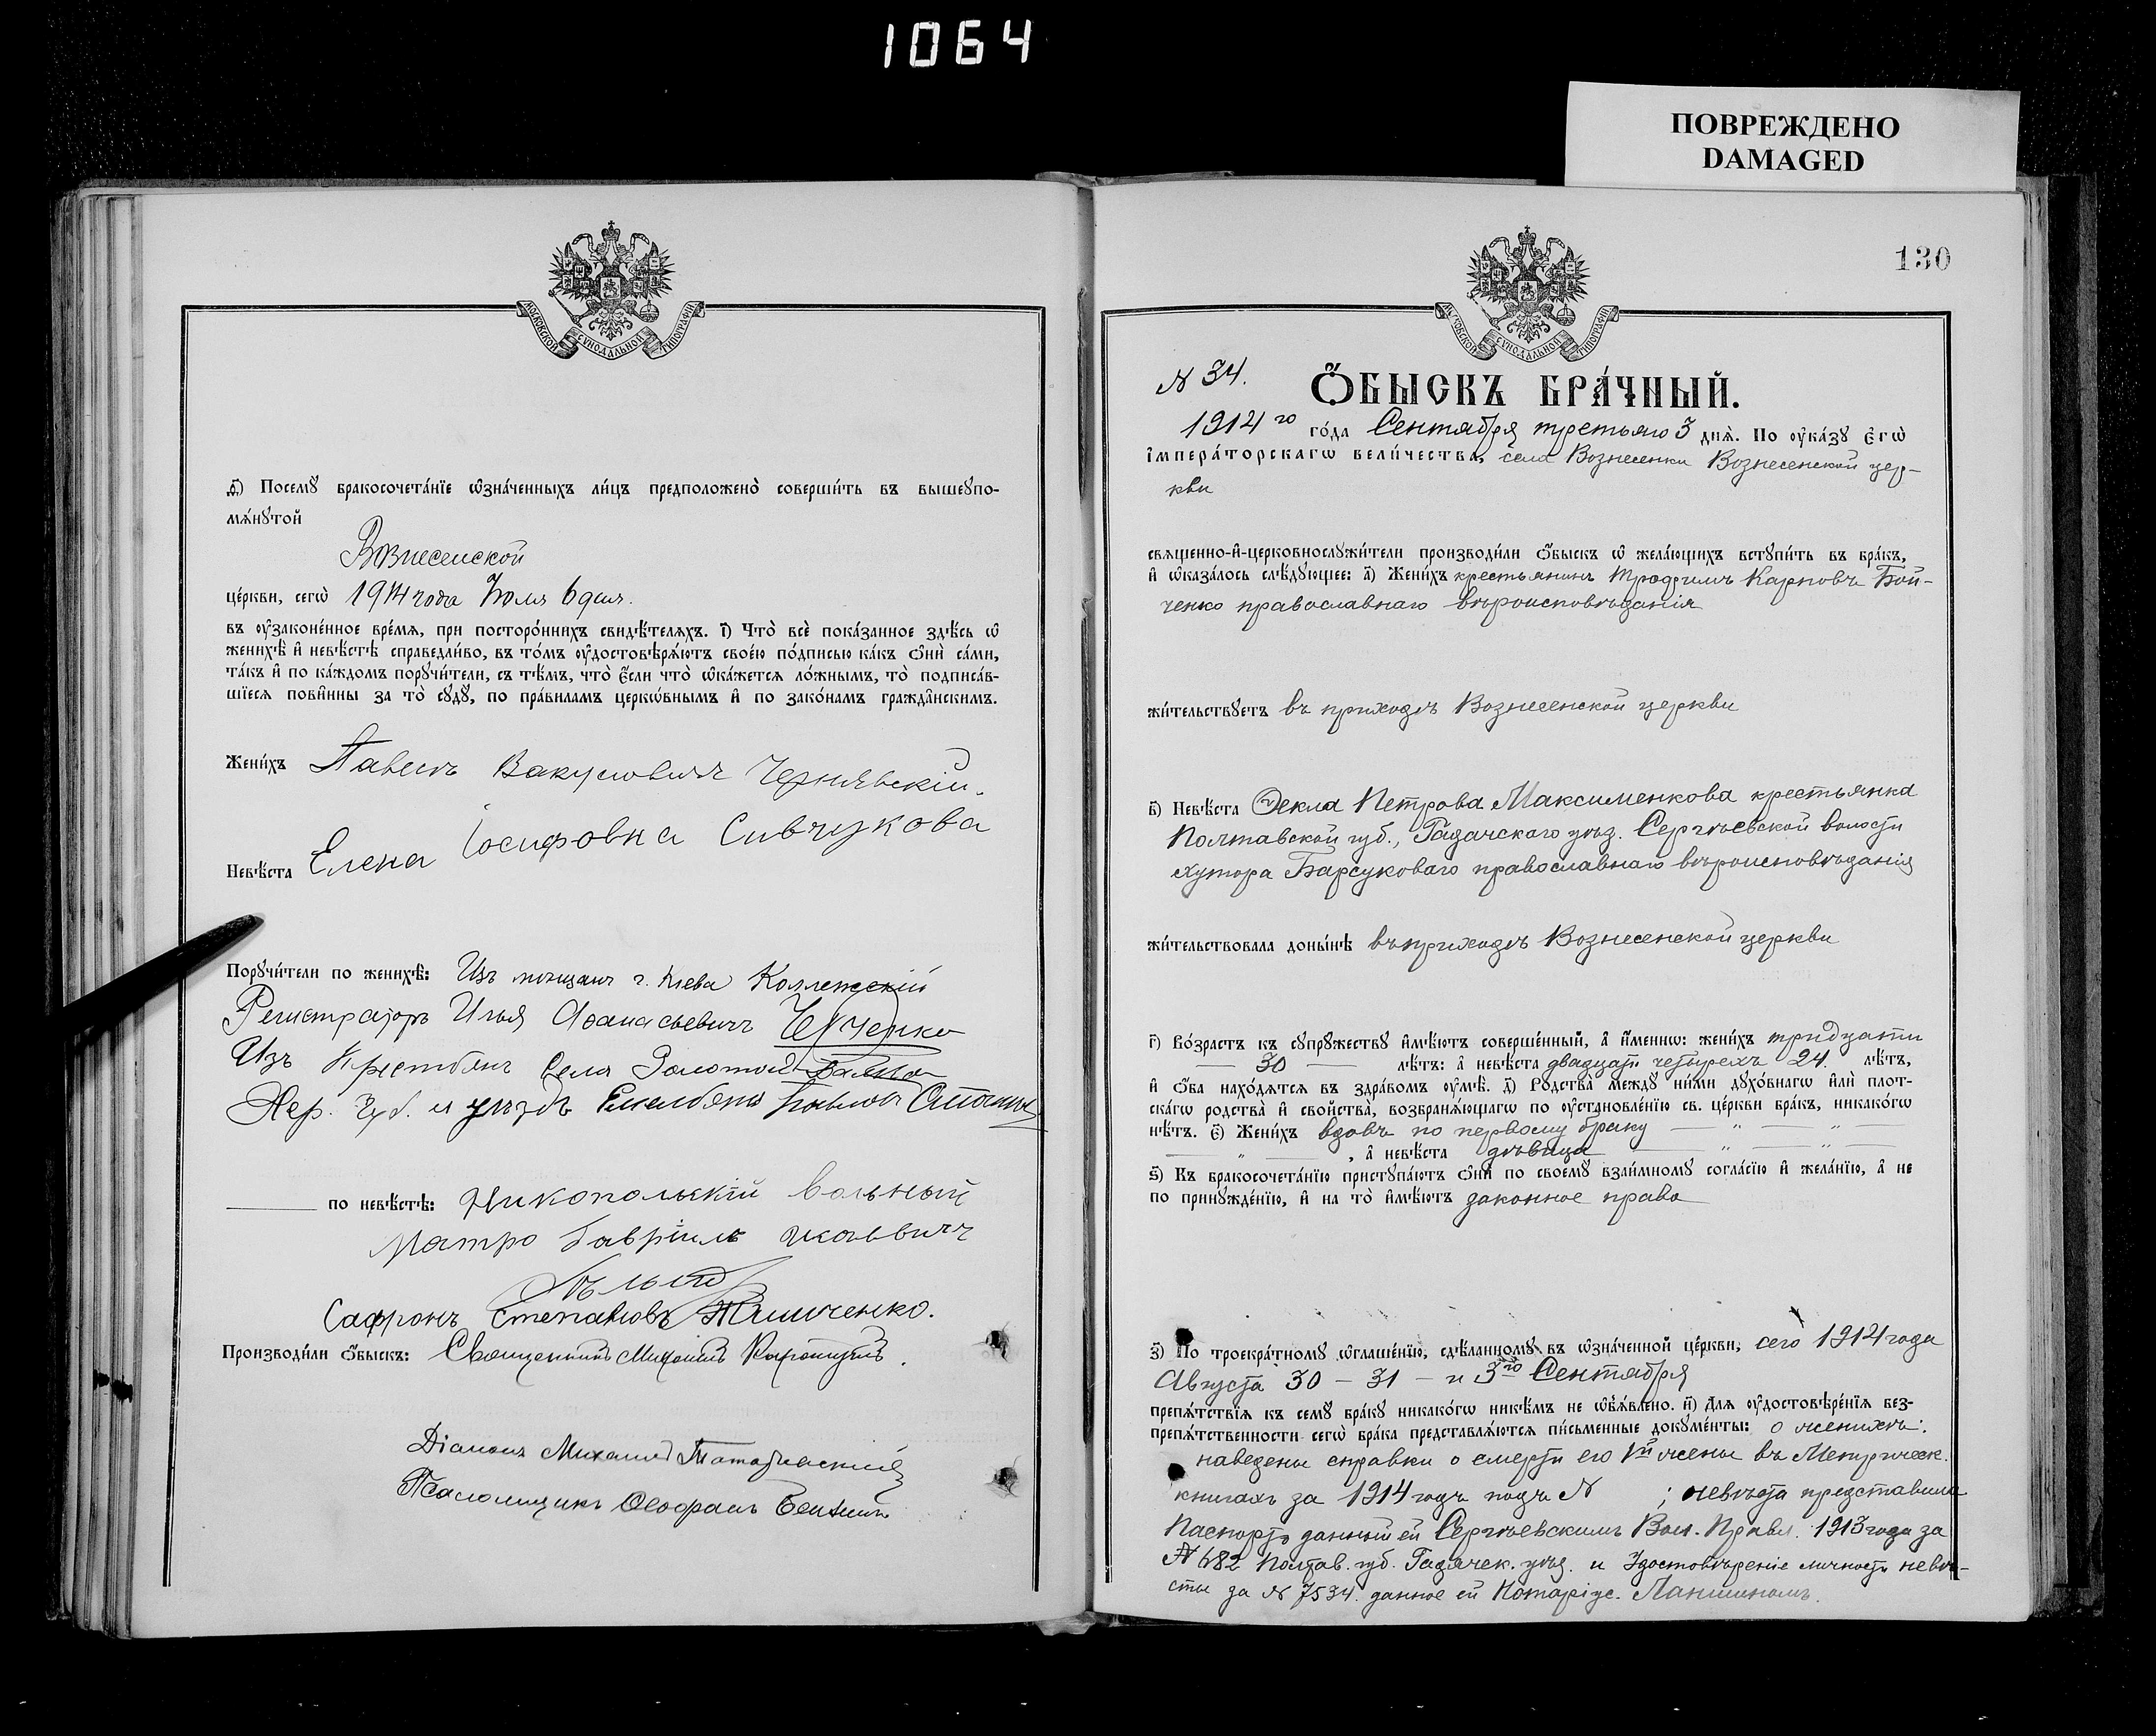 1064
ПОВРЕЖДЕНО
DAMAGED
МОСКОВСКОЙ СѴНОДАЛЬНОЙ ТИПОГРАФІИ
д҃) Посемꙋ бракосочета́нїе ѡ҆зна́ченныхъ ли́цъ предположено̀ соверши́ть въ вышеꙋпо-
мѧ́нꙋтой
Вознесенской
це́ркви, сегѡ̀ 1914 года Іюля 6 дня.
въ ᲂу҆законе́нное вре́мѧ, при посторо́ннихъ свидѣ́телѧхъ. і҃) Что̀ всѐ пока́занное здѣ́сь ѡ҆
женихѣ̀ и҆ невѣ́стѣ справедли́во, въ то́мъ ᲂу҆достовѣрѧ́ютъ свое́ю по́дписью ка́къ ѻ҆нѝ са́ми,
та́къ и҆ по ка́ждомъ порꙋчи́тели, съ тѣ́мъ, что̀ є҆́сли что̀ ѡ҆ка́жетсѧ ло́жнымъ, то̀ подписа́в-
шїесѧ пови́нны за то̀ сꙋдꙋ̀, по пра́виламъ церкѡ́внымъ и҆ по зако́намъ гражда́нскимъ.
Жени́хъ Павелъ Вакуловичъ Чернявскій.
Невѣ́ста Елена Іосифовна Сивчукова
Порꙋчи́тели по женихѣ̀: Изъ мещанъ г. Кіева Коллежскій
Регистраторъ Илья Афанасьевичъ
Изъ Крестьянъ Села Золотой Балки
Хер. Губ. и уѣзда Емельянъ Павловъ
по невѣ́стѣ: Никопольскій вольный
Матро Гавріилъ
Сафронъ Степановъ
Производи́ли ѻ҆́быскъ: Священникъ Михаилъ
Діаконъ Михаилъ
Псаломщикъ Ѳеофанъ
130
МОСКОВСКОЙ СѴНОДАЛЬНОЙ ТИПОГРАФІИ
N 34.
Ѻ҆́БЫСКЪ БРА́ЧНЫЙ.
1914 го го́да Сентября третьяго 3 днѧ̀. По ᲂу҆ка́зꙋ є҆гѡ̀
і҆мпера́торскагѡ вели́чества, села Вознесенки Вознесенской цер-
кви
свѧщенно-и҆-церковнослꙋжи́тели производи́ли ѻ҆́быскъ ѡ҆ жела́ющихъ встꙋпи́ть въ бра́къ,
и҆ ѡ҆каза́лось слѣ́дꙋющее: а҃) Жени́хъ крестьянинъ Трофимъ Карповъ Бой-
ченко православнаго вѣроисповѣданія
жи́тельствꙋетъ въ приходѣ Вознесенской церкви
в҃) Невѣ́ста Ѳекла Петрова Максименкова крестьянка
Полтавской губ., Гадячского уѣз. Сергѣевской волости
хутора Барсуковаго православнаго вѣроисповѣданія
жи́тельствовала доны́нѣ въ приходѣ Вознесенской церкви
г҃) Во́зрастъ къ сꙋпрꙋ́жествꙋ и҆мѣ́ютъ соверше́нный, а҆ и҆́меннѡ: жени́хъ тридцати
30 лѣ́тъ: а҆ невѣ́ста двадцати четырехъ 24. лѣ́тъ,
и҆ ѻ҆́ба нахо́дѧтсѧ въ здра́вомъ ᲂу҆мѣ̀. д҃) Родства̀ междꙋ̀ ни́ми дꙋхо́внагѡ и҆лѝ плот-
ска́гѡ родства̀ и҆ свойства̀, возбранѧ́ющагѡ по ᲂу҆становле́нїю св. це́ркви бра́къ, никако́гѡ
нѣ́тъ. є҃) Жени́хъ вдовъ по первому браку — „ — „ —
— „ —, а҆ невѣ́ста дѣвица — „ — „ —
ѕ҃) Къ бракосочета́нїю пристꙋпа́ютъ ѻ҆нѝ по своемꙋ̀ взаи́мномꙋ согла́сїю и҆ жела́нїю, а҆ не
по принꙋжде́нїю, и҆ на то̀ и҆мѣ́ютъ законное право
з҃) По троекра́тномꙋ ѡ҆глаше́нїю, сдѣ́ланномꙋ въ ѡ҆зна́ченной це́ркви, сего 1914 года
Августа 30 — 31 — и 3го Сентября
препѧ́тствїѧ къ семꙋ̀ бра́кꙋ никако́гѡ никѣ́мъ не ѡ҆б̾ѧ́влено. и҃) Длѧ ᲂу҆достовѣре́нїѧ без-
препѧ́тственности сегѡ̀ бра́ка представлѧ́ютсѧ пи́сьменные докꙋме́нты: о женихѣ:
наведены справки о смерти его Iй жены въ Метрическ.
книгахъ за 1914 годъ подъ N ; невѣста представила
Паспортъ данный ей Сергѣевскимъ Вол. Правл. 1913 года за
N 682 Полтав. губ. Гадячск. уѣз. и Удостовѣреніе личности невѣ-
сты за N 7534. данное ей Нотаріус. Ланшинымъ.